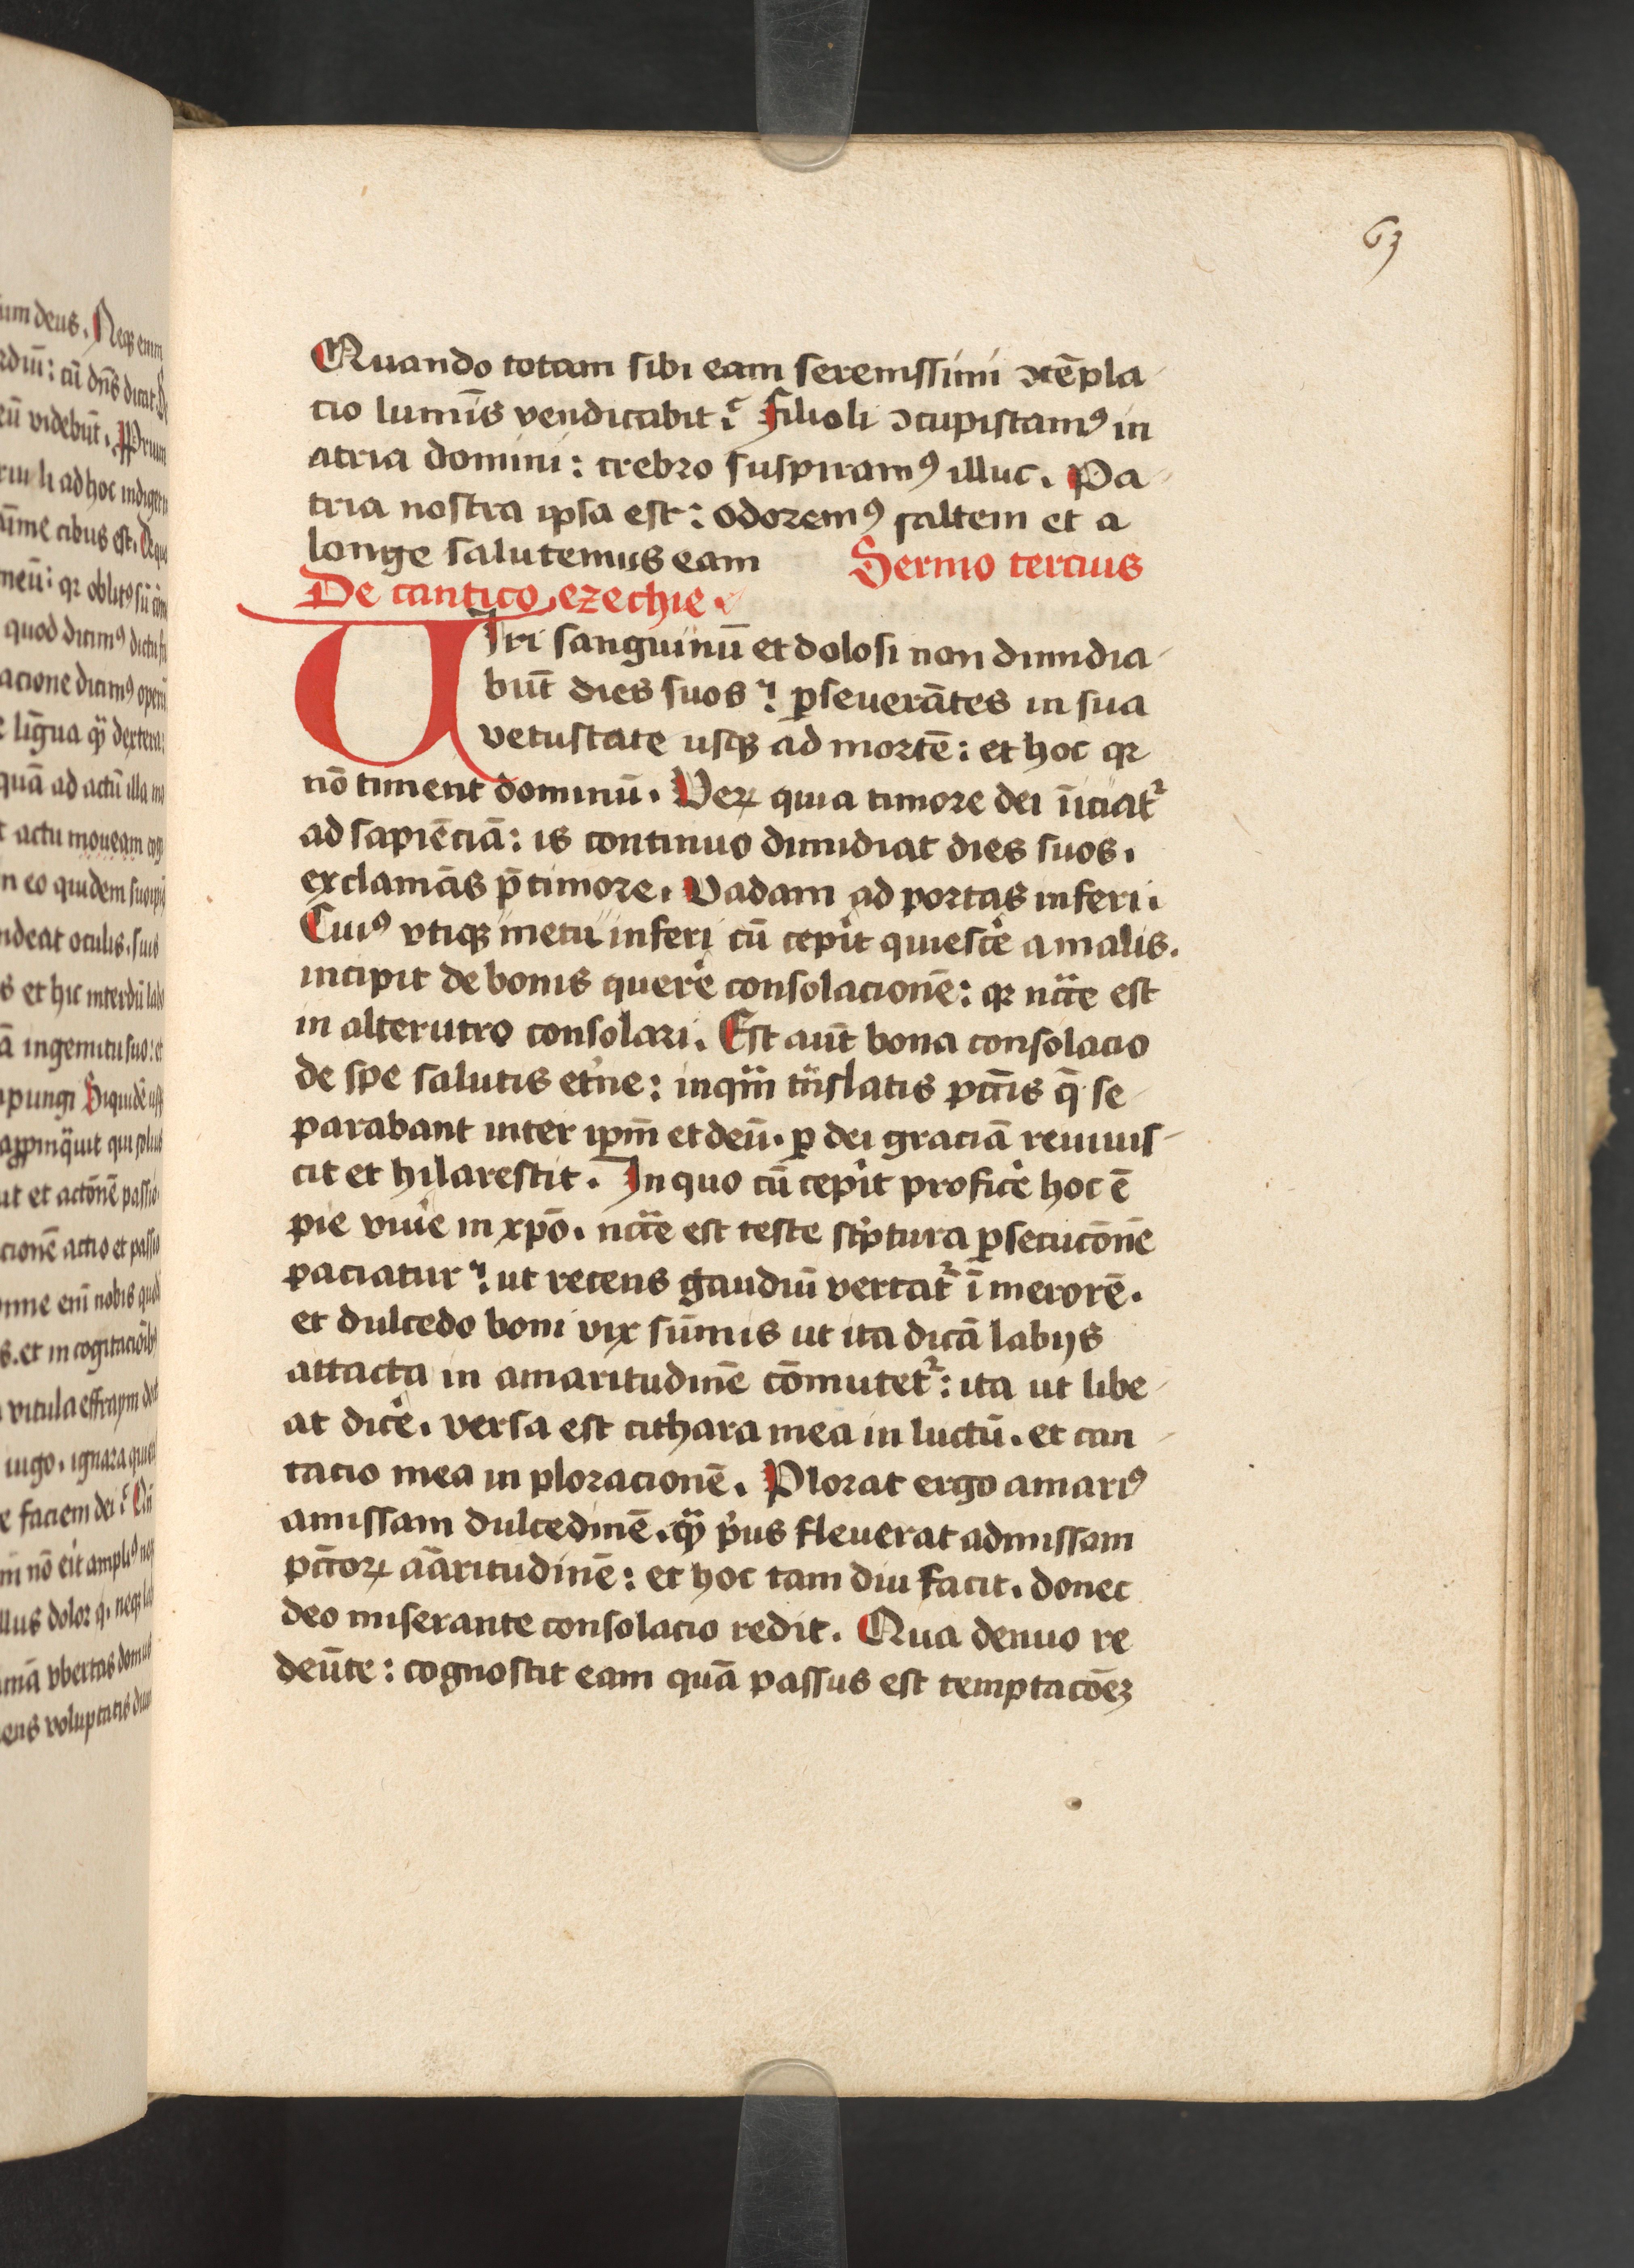 63
Quando totam sibi eam serenissimi ↄtēpla
cio lumīs vendicabit? Filioli ↄcupiscamꝰ in
atria domini: crebro suspiramꝰ illuc. Pa
tria nostra ipsa est: odoremꝰ saltem et a
longe salutemus eam Sermo tercius
De cantico ezechie.
Viri sanguinū et dolosi non dimidia
būt dies suos? ꝑseuerātes in sua
vetustate usqꝫ ad mortē: et hoc qꝛ
nō timent dominū. Veꝝ quia timore dei īiciatᷣ
ad sapiēciā: is continuo dimidiat dies suos.
exclamās p̄ timore. Vadam ad portas inferi.
Cuiꝰ vtiqꝫ metu inferi cū cepit quiescē a malis.
incipit de bonis querē consolacionē: qꝛ nccē est
in alterutro consolari. Est aūt bona consolacio
de spe salutis etne: in qua tnslatis pctīs q̄ se
parabant inter ipm̄ et deū. ꝑ dei graciā reuiuis
cit et hilarescit. In quo cū cepit proficē hoc ē
pie viuē in xpō. nccē est teste sc̄ptura ꝑsecucōnē
paciatur? ut recens gaudiū vertatᷣ ī merorē.
et dulcedo boni vix sūmis ut ita dicā labijs
attacta in amaritudinē cōmutetᷣ: ita ut libe
at dicē. versa est cithara mea in luctū. et can
tacio mea in ploracionē. Plorat ergo amariꝰ
amissam dulcedinē. qᷓ pꝰus fleuerat admissam
pctōꝝ aāritudinē: et hoc tam diu facit. donec
deo miserante consolacio redit. Qua denuo re
deūte: cognoscit eam quā passus est temptacōeꝫ